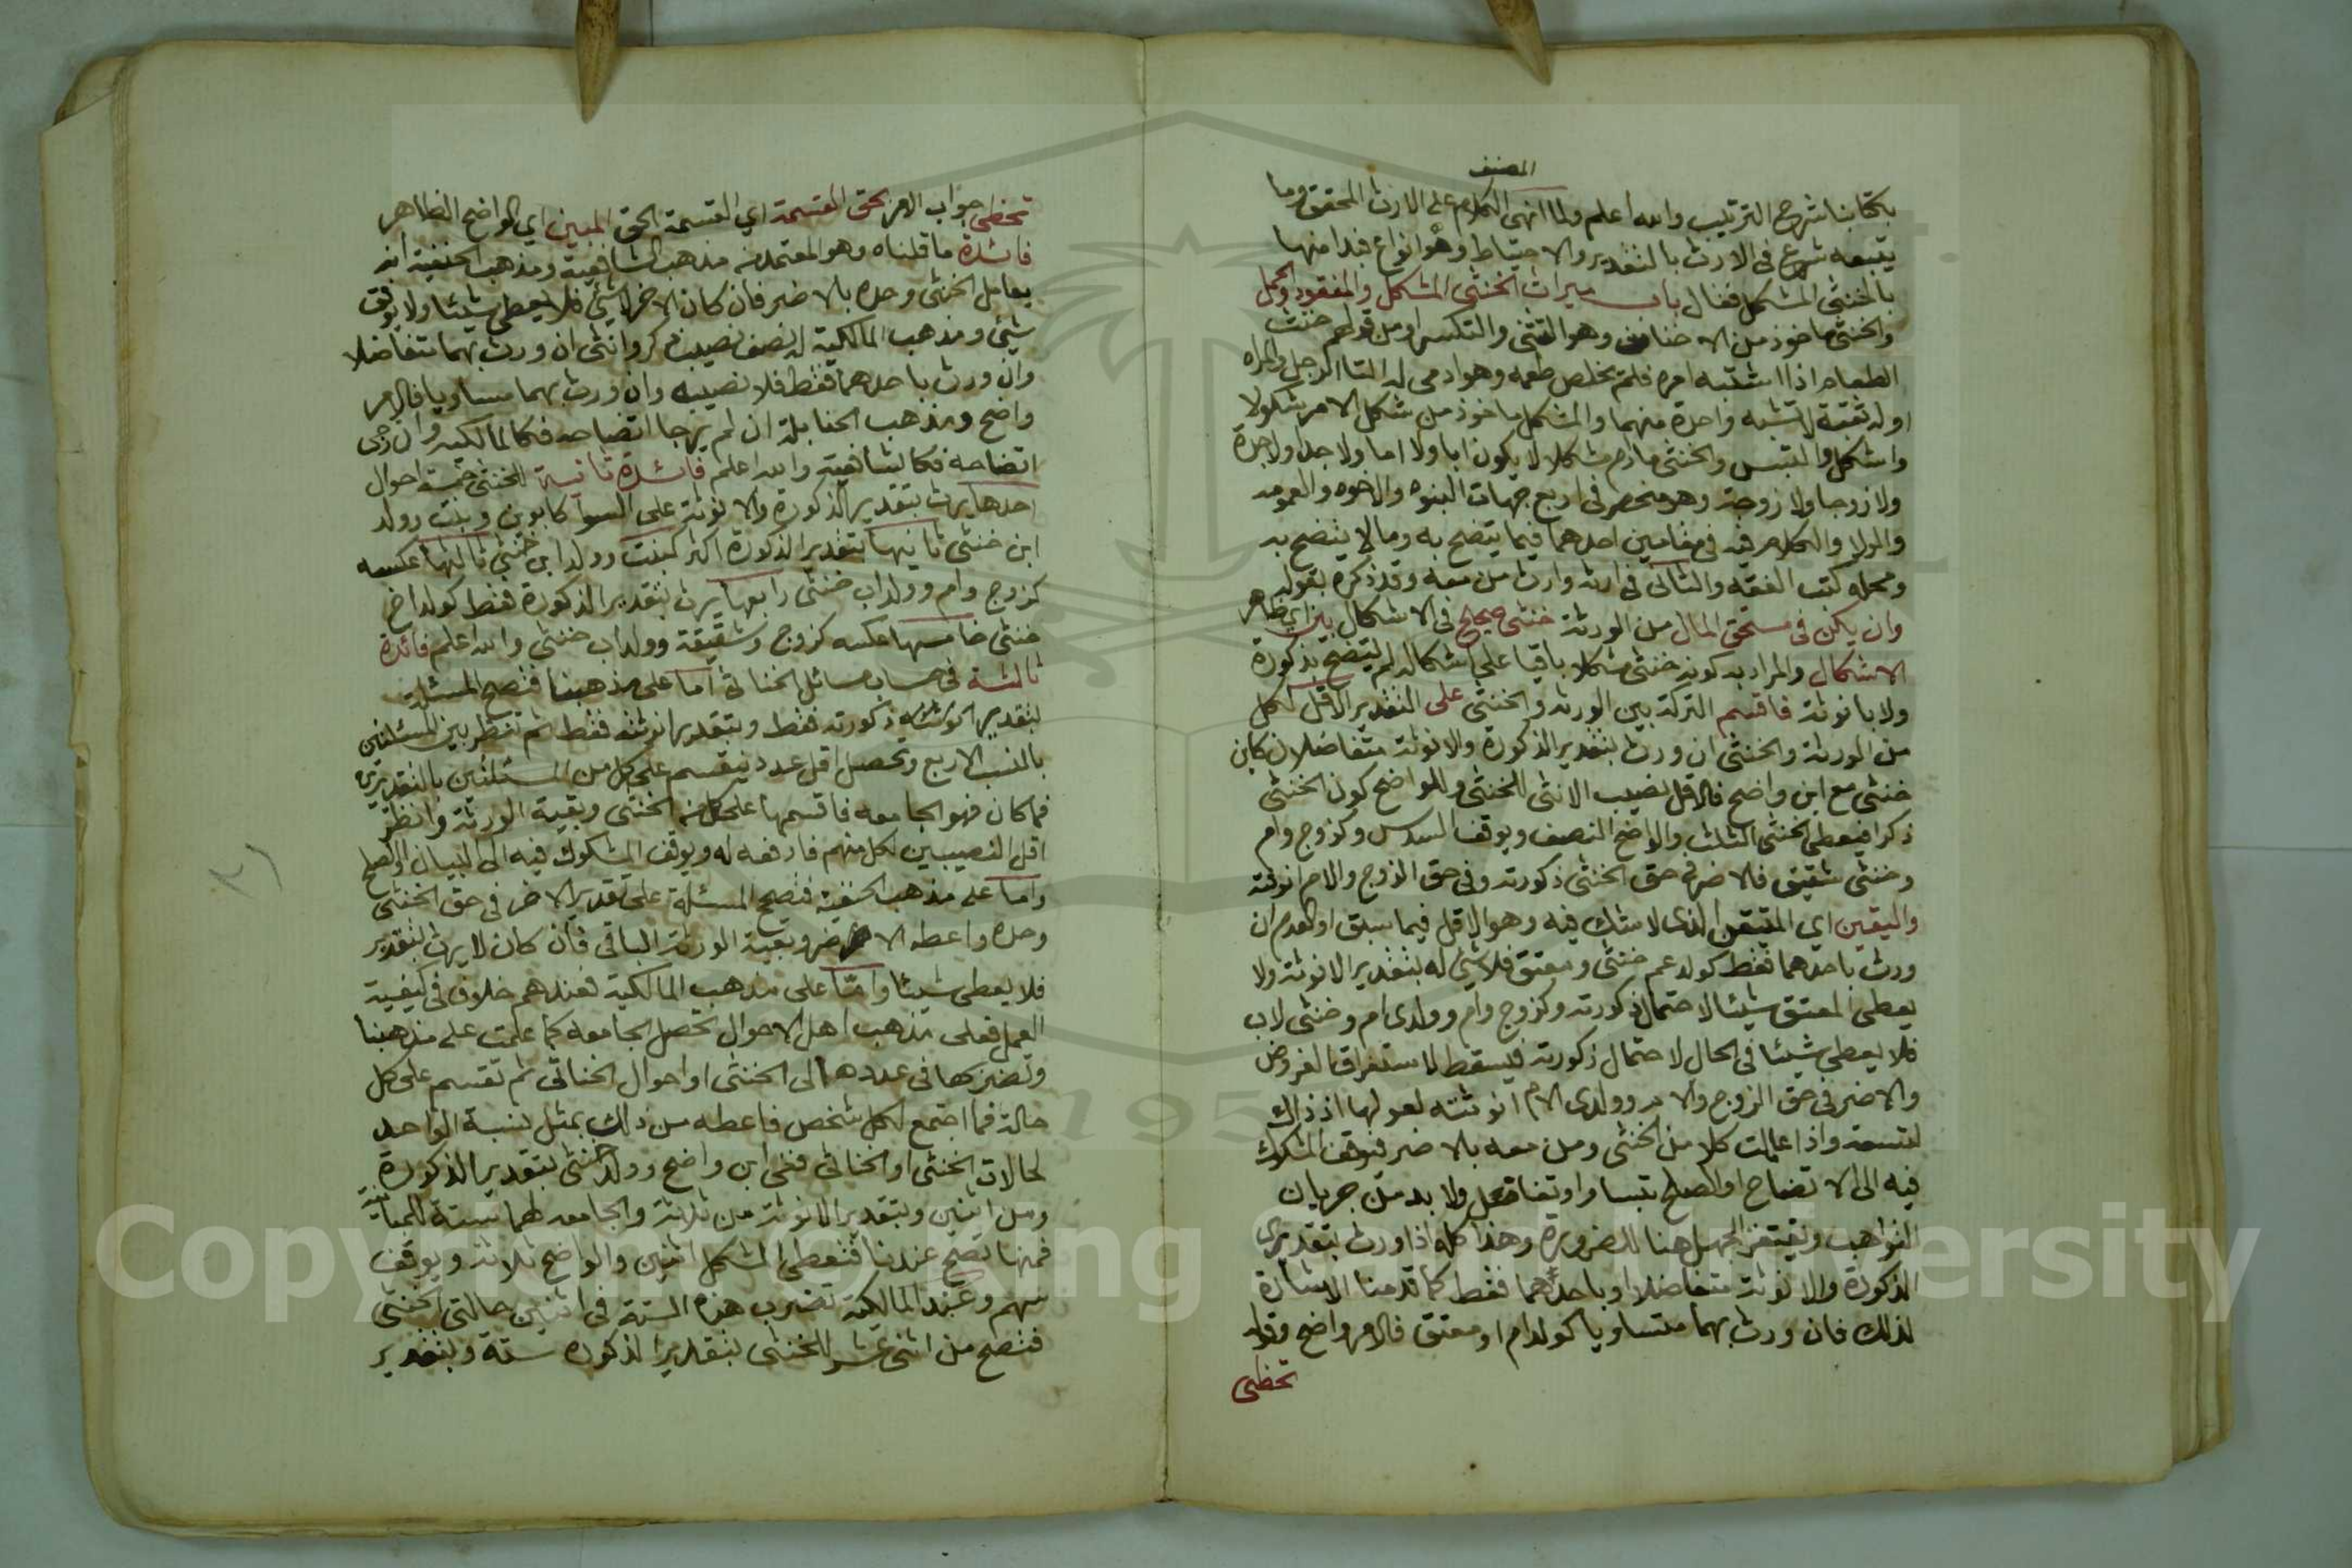 المصنف
بكتابنا شرح الترتيب والله اعلم ولما انهى الكلام على الارث المحقق وما
يتبعه شرع في الارث بالتقدير والاحتياط وهو انواع فبدا منها
بالخنثى المشكل فقال باب ميراث الخنثى المشكل والمفقود والحمل
والخنثى ماخوذ من الانخناث وهو التثنى والتكسر او من قولهم خنث
الطعام اذا اشتبه امره فلم يخلص طعمه وهو ادمى له التا الرجل والمراه
اوله ثقبة لا تشبه واحدة منهما والمشكل ماخوذ من شكل الامر شكولا
واشكل والتبس والخنثى مادام مشكلا لا يكون ابا ولا اما ولا جدا ولا جدة
ولا زوجا ولا زوجة وهو منحصر في اربع جهات البنوه والاخوه والعمومه
والولا والكلام فيه في مقامين احدهما فيما يتضح به وما لا يتضح به
ومحله كتب الفقه والثانى في ارثه وارث من معه وقد ذكره بقوله
وان يكن في مستحق المال من الورثة خنثى صحيح في الاشكال بين اي ظاهر
الاشكال والمراد به كونه خنثى مشكلا باقيا على اشكاله لم يتضح بذكورة
ولا بانوثة فاقسم التركة بين الورثة والخنثى على التقدير الاقل لكل
من الورثة والخنثى ان ورث بتقدير الذكورة والانوثة متفاضلا كابن
خنثى مع ابن واضح فالاقل نصيب الانثى للخنثى وللواضح كون الخنثى
ذكرا فيعطى الخنثى الثلث والواضح النصف ويوقف السدس وكزوج وام
وخنثى شقيق فالاضر في حق الخنثى ذكورته وفي حق الزوج والام انوثته
واليقين اي المتيقن الذى لا شك فيه وهو الاقل فيما سبق او العدم ان
ورث باحدهما فقط كولد عم خنثى ومعتق فلا شئ له بتقدير الانوثة ولا
يعطى المعتق شيئا لاحتمال ذكورته وكزوج وام وولدى ام وخنثى لاب
فلا يعطى شيئا في الحال لاحتمال ذكورته فيسقط لاستغراق الفروض
والاضر في حق الزوج والام وولدى الام انوثته لعولها اذ ذاك
لتسعة واذا عاملت كلا من الخنثى ومن معه بالاضر فيوقف المشكوك
فيه الى الاتضاح او الصلح بتساو او تفاضل ولا بد من جريان
التواهب ويغتفر الجهل هنا للضرورة وهذا كله اذا ورث بتقديرى
الذكورة والانوثة متفاضلا او باحدهما فقط كما قدمنا الاشارة
لذلك فان ورث بهما متساويا كولد ام او معتق فالامر واضح وقوله
تحظى
تحظى جواب الامر بحق القسمة اي القسمة الحق المبين اي الواضح الظاهر
فائدة ما قلناه وهو المعتمد من مذهب الشافعية ومذهب الحنفية انه
يعامل الخنثى وحده بالاضر فان كان الاضر لا شئ فلا يعطى شيئا ولا يوقف
شئ ومذهب المالكية له نصف نصيب ذكر وانثى ان ورث بهما متفاضلا
وان ورث باحدهما فقط فله نصيبه وان ورث بهما مساويا فالامر
واضح ومذهب الحنابلة ان لم يرجا اتضاحه فكالمالكية وان رجى
اتضاحه فكالشافعية والله اعلم فائدة ثانية للخنثى خمسة احوال
احدها يرث بتقدير الذكورة والانوثة على السوا كابوين وبنت وولد
ابن خنثى ثانيها بتقدير الذكورة اكثر كبنت وولد ابن خنثى ثالثها عكسه
كزوج وام وولد اب خنثى رابعها يرث بتقدير الذكورة فقط كولد اخ
خنثى خامسها عكسه كزوج وشقيقة وولد اب خنثى والله اعلم فائدة
ثالثة في حساب مسائل الخناثى اما على مذهبنا فتصح المسئلة
بتقدير ذكورته فقط وبتقدير انوثته فقط ثم تنظر بين المسئلتين
بالنسب الاربع وتحصل اقل عدد ينقسم على كل من المسئلتين بالتقديرين
فما كان فهو الجامعه فاقسمها على كل من الخنثى وبقية الورثة وانظر
اقل النصيبين لكل منهم فادفعه له ويوقف المشكوك فيه الى البيان او الصلح
واما على مذهب الحنفية فتصح المسئلة على تقدير الاضر في حق الخنثى
وحده واعطه الاضر وبقية الورثة الباقى فان كان لا يرث بتقدير
فلا يعطى شيئا واما على مذهب المالكية فعندهم خلاف في كيفية
العمل فعلى مذهب اهل الاحوال تحصل الجامعه كما علمت على مذهبنا
وتضربها في عدد حالى الخنثى او احوال الخناثى ثم تقسم على كل
حالة فما اجتمع لكل شخص فاعطه من ذلك بمثل نسبة الواحد
لحالات الخنثى او الخناثى ففى ابن واضح وولد خنثى بتقدير الذكورة
ومن اثنين وبتقدير الانوثة من ثلاثة والجامعه لهما ستة للمباينة
فمنها تصح عندنا فتعطى المشكل اثنين والواضح ثلاثة ويوقف
سهم وعند المالكية تضرب هذه الستة في اثنين حالتى الخنثى
فتصح من اثنى عشر للخنثى بتقدير الذكوره ستة وبتقدير
Copyright © King Saud University
195